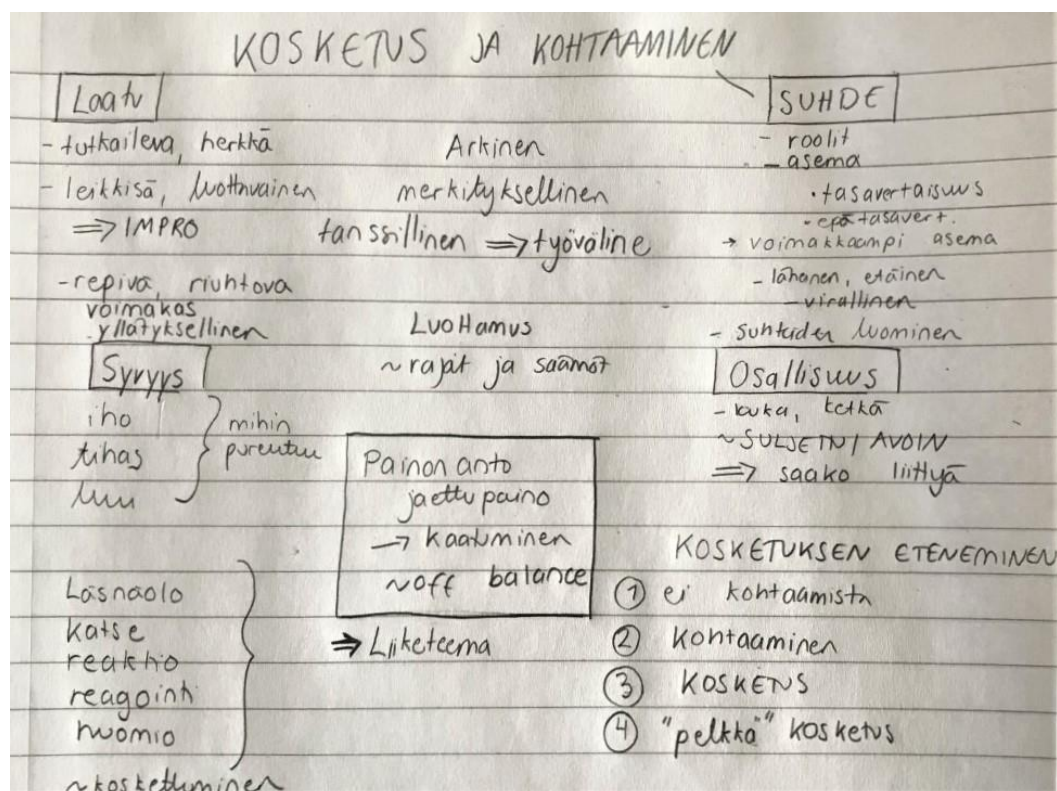 KOSKETUS JA KOHTAAMINEN
Laatu
- tutkaileva, herkkä
- leikkisä, luottavainen
⇒ IMPRO
- repivä, riuhtova
voimakas
yllätyksellinen
Syvyys
iho
lihas
luu
mihin
pureutuu
Läsnäolo
katse
reaktio
reagointi
huomio
~koskettuminen
Arkinen
merkityksellinen
tanssillinen ⇒ työväline
Luottamus
~ rajat ja säännöt
Painon anto
jaettu paino
→ kaatuminen
~off balance
⇒ Liiketeema
SUHDE
- roolit
- asema
• tasavertaisuus
• epätasavert.
→ voimakkaampi asema
- läheinen, etäinen
- virallinen
- suhteiden luominen
Osallisuus
- kuka, ketkä
~ SULJETTU / AVOIN
⇒ saako liittyä
KOSKETUKSEN ETENEMINEN
1 ei kohtaamista
2 kohtaaminen
3 KOSKETUS
4 "pelkkä" kosketus